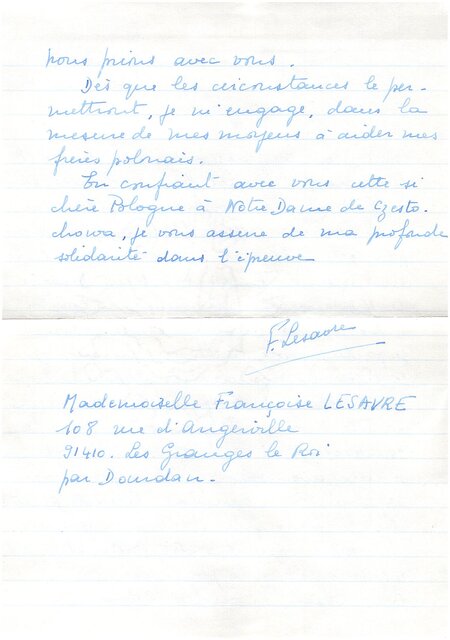 nous prions avec vous.
Dès que les circonstances le per-
mettront, je m'engage, dans la
mesure de mes moyens à aider mes
frères polonais.
En confiant avec vous cette si
chère Pologne à Notre Dame de Czesto-
chowa, je vous assure de ma profonde
solidarité dans l'épreuve
F. Lesavre
Mademoiselle Françoise LESAVRE
108 rue d'Angerville
91410. Les Granges le Roi
par Dourdan.